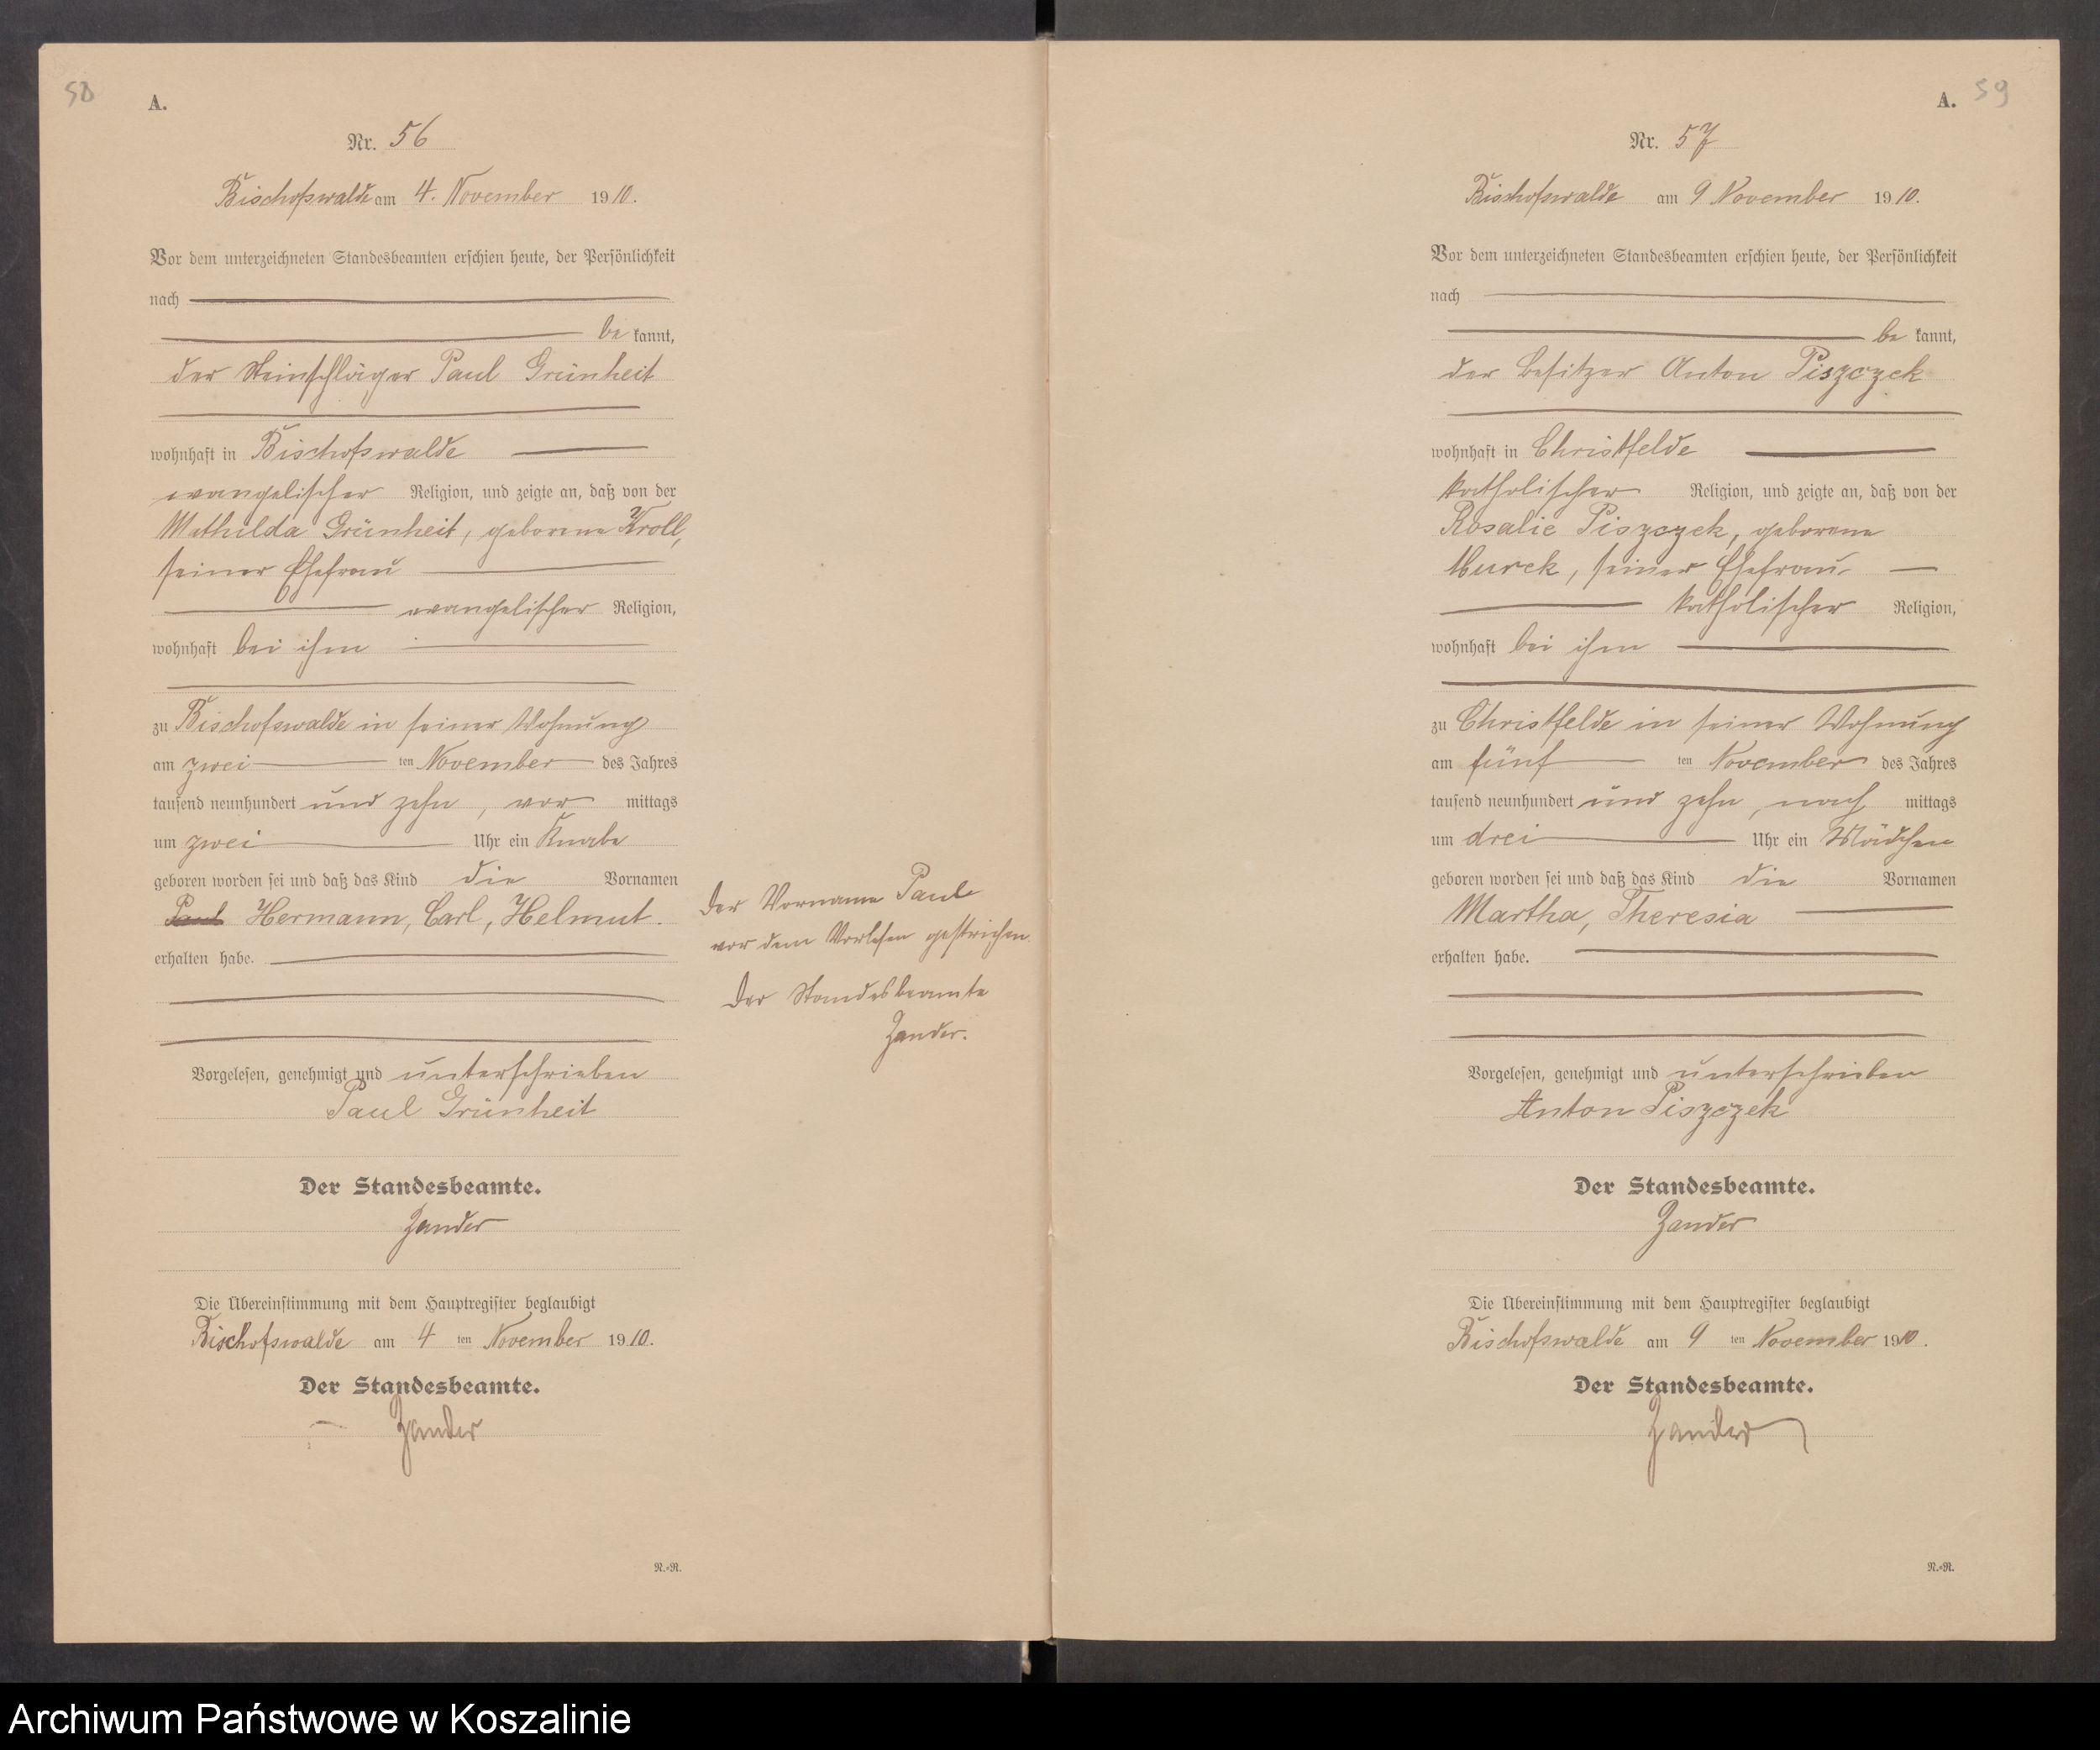 58
A.
Nr. 56
Bischofswalde am 4. November 1910.
Vor dem unterzeichneten Standesbeamten erschien heute, der Persönlichkeit
nach
be kannt,
der Steinschläger Paul Grünheit
wohnhaft in Bischofswalde
evangelischer Religion, und zeigte an, daß von der
Mathilda Grünheit, geborene Kroll,
seiner Ehefrau
evangelischer Religion,
wohnhaft bei ihm
zu Bischofswalde in seiner Wohnung
am zwei ten November des Jahres
tausend neunhundert und zehn, vor mittags
um zwei Uhr ein Knabe
geboren worden sei und daß das Kind die Vornamen
Paul Hermann, Carl, Helmut.
erhalten habe.
Der Vorname Paul
vor dem Vorlesen gestrichen
Der Standesbeamte
Zander.
Vorgelesen, genehmigt und unterschrieben
Paul Grünheit
Der Standesbeamte.
Zander
Die Übereinstimmung mit dem Hauptregister beglaubigt
Bischofswalde am 4 ten November 1910.
Der Standesbeamte.
Zander
N.=N.
A. 59
Nr. 57
Bischofswalde am 9 November 1910.
Vor dem unterzeichneten Standesbeamten erschien heute, der Persönlichkeit
nach
be kannt,
der Besitzer Anton Piszczek
wohnhaft in Christfelde
katholischer Religion, und zeigte an, daß von der
Rosalie Piszczek, geborene
Murek, seiner Ehefrau
katholischer Religion,
wohnhaft bei ihm
zu Christfelde in seiner Wohnung
am fünf ten November des Jahres
tausend neunhundert und zehn, nach mittags
um drei Uhr ein Mädchen
geboren worden sei und daß das Kind die Vornamen
Martha, Theresia
erhalten habe.
Vorgelesen, genehmigt und unterschrieben
Anton Piszczek
Der Standesbeamte.
Zander
Die Übereinstimmung mit dem Hauptregister beglaubigt
Bischofswalde am 9 ten November 1910.
Der Standesbeamte.
Zander
N.=N.
Archiwum Państwowe w Koszalinie